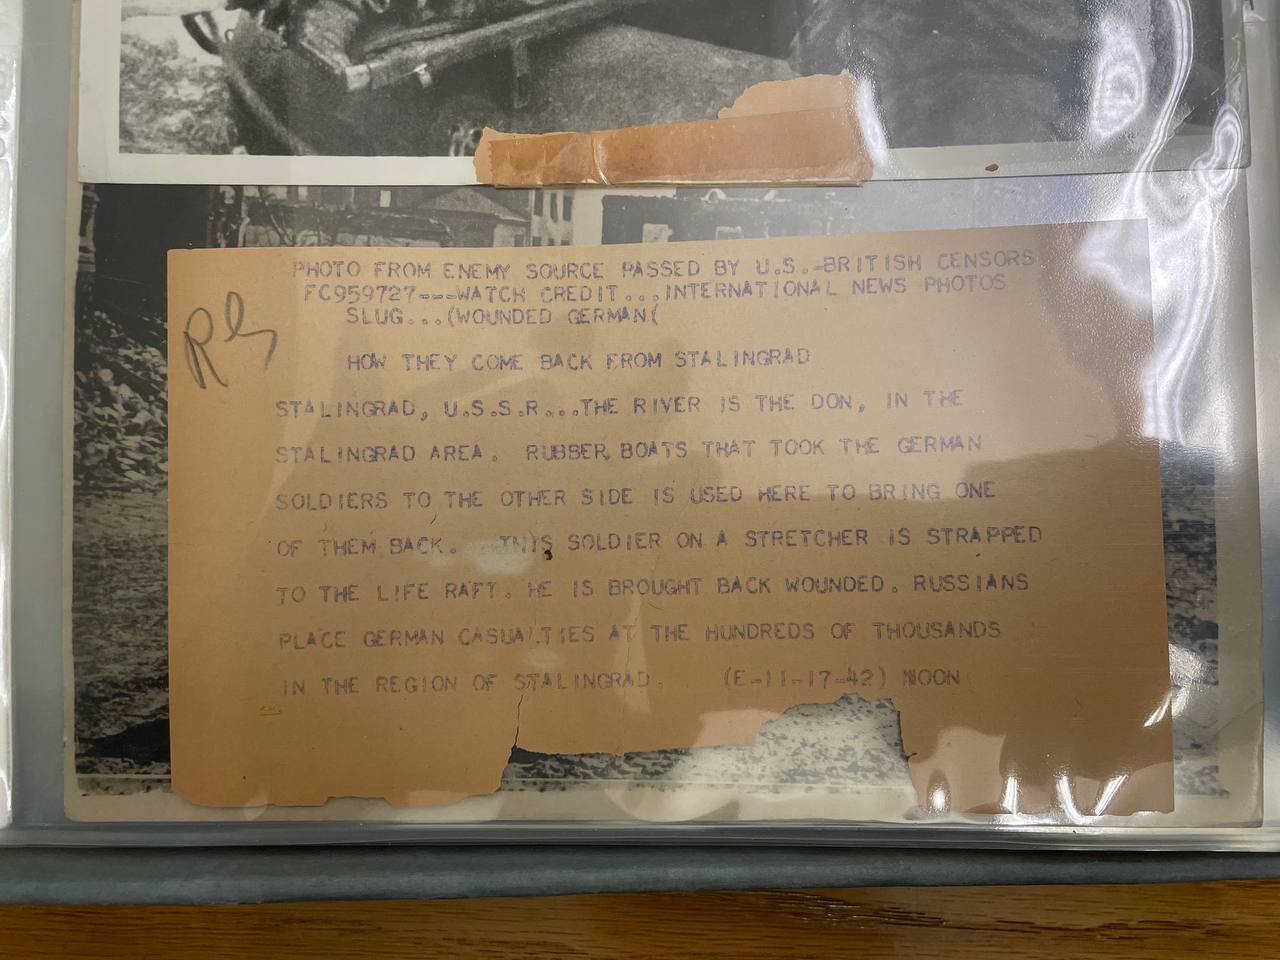 PHOTO FROM ENEMY SOURCE PASSED BY U.S.-BRITISH CENSORS
FC959727---WATCH CREDIT...INTERNATIONAL NEWS PHOTOS
SLUG...(WOUNDED GERMAN(
HOW THEY COME BACK FROM STALINGRAD
STALINGRAD, U.S.S.R...THE RIVER IS THE DON, IN THE
STALINGRAD AREA. RUBBER BOATS THAT TOOK THE GERMAN
SOLDIERS TO THE OTHER SIDE IS USED HERE TO BRING ONE
OF THEM BACK. THIS SOLDIER ON A STRETCHER IS STRAPPED
TO THE LIFE RAFT. HE IS BROUGHT BACK WOUNDED. RUSSIANS
PLACE GERMAN CASUALTIES AT THE HUNDREDS OF THOUSANDS
IN THE REGION OF STALINGRAD. (E-11-17-42) NOON